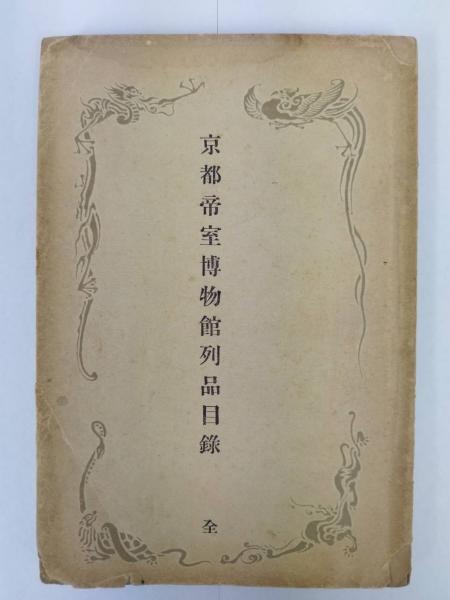 京都帝室博物館列品目錄
全